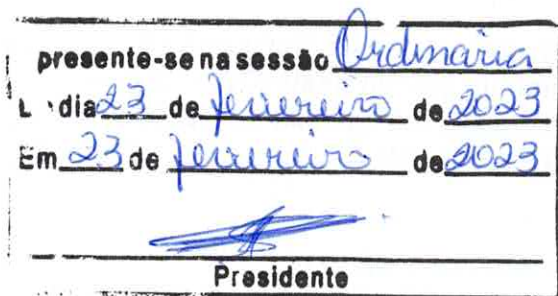 presente-se na sessão Ordinária
dia 23 de fevereiro de 2023
Em 23 de fevereiro de 2023
Presidente